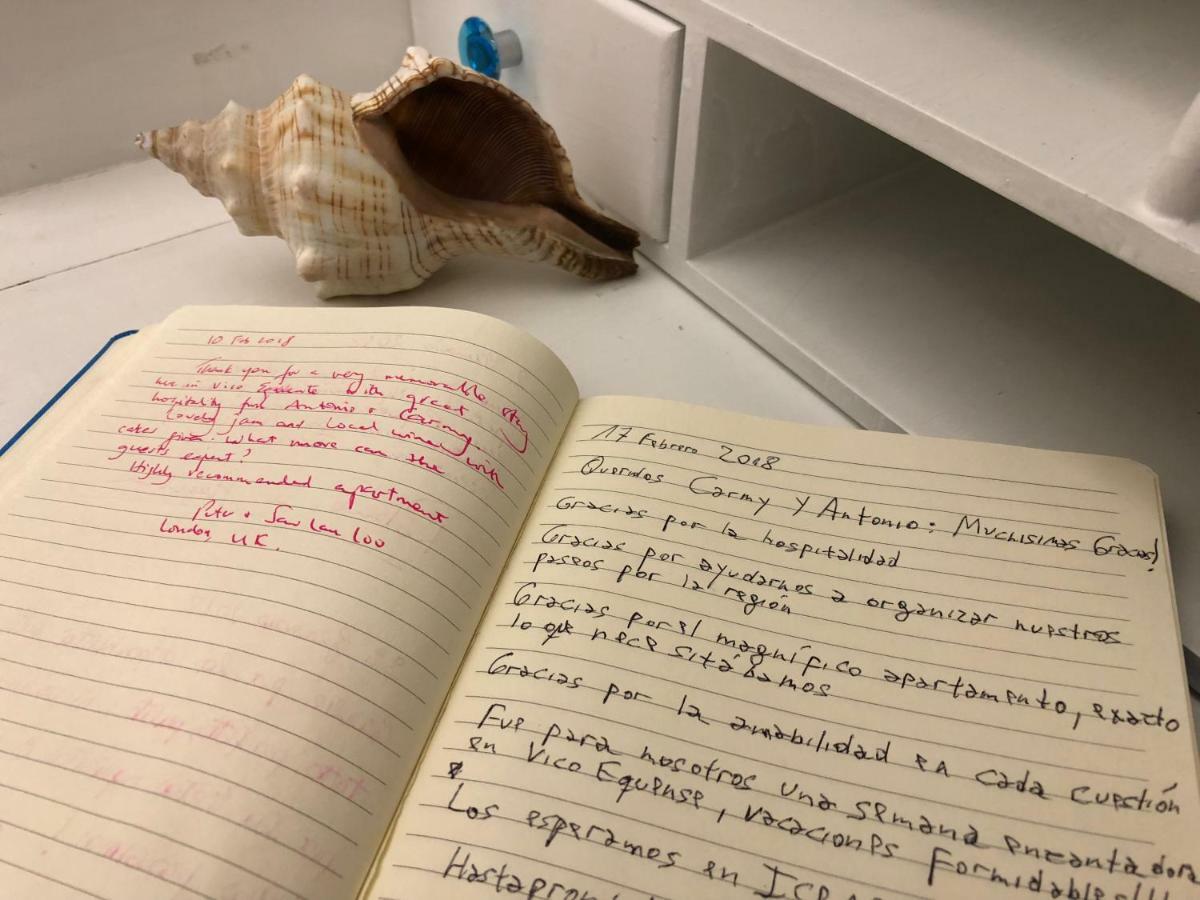 10 Feb 2018
Thank you for a very memorable stay
here in Vico Equense with great
hospitality from Antonio & Carmy.
Lovely jam and local wines with
cakes given. What more can the
guests expect?
Highly recommended apartment
Peter & Saw Lan Loo
London, UK.
17 Febrero 2018
Queridos Carmy y Antonio: Muchisimas Gracias!
Gracias por la hospitalidad
Gracias por ayudarnos a organizar nuestros
paseos por la región
Gracias por el magnífico apartamento, exacto
lo que necesitábamos
Gracias por la amabilidad en cada cuestión
Fue para nosotros una semana encantadora
en Vico Equense, vacaciones formidables!!!
Los esperamos en